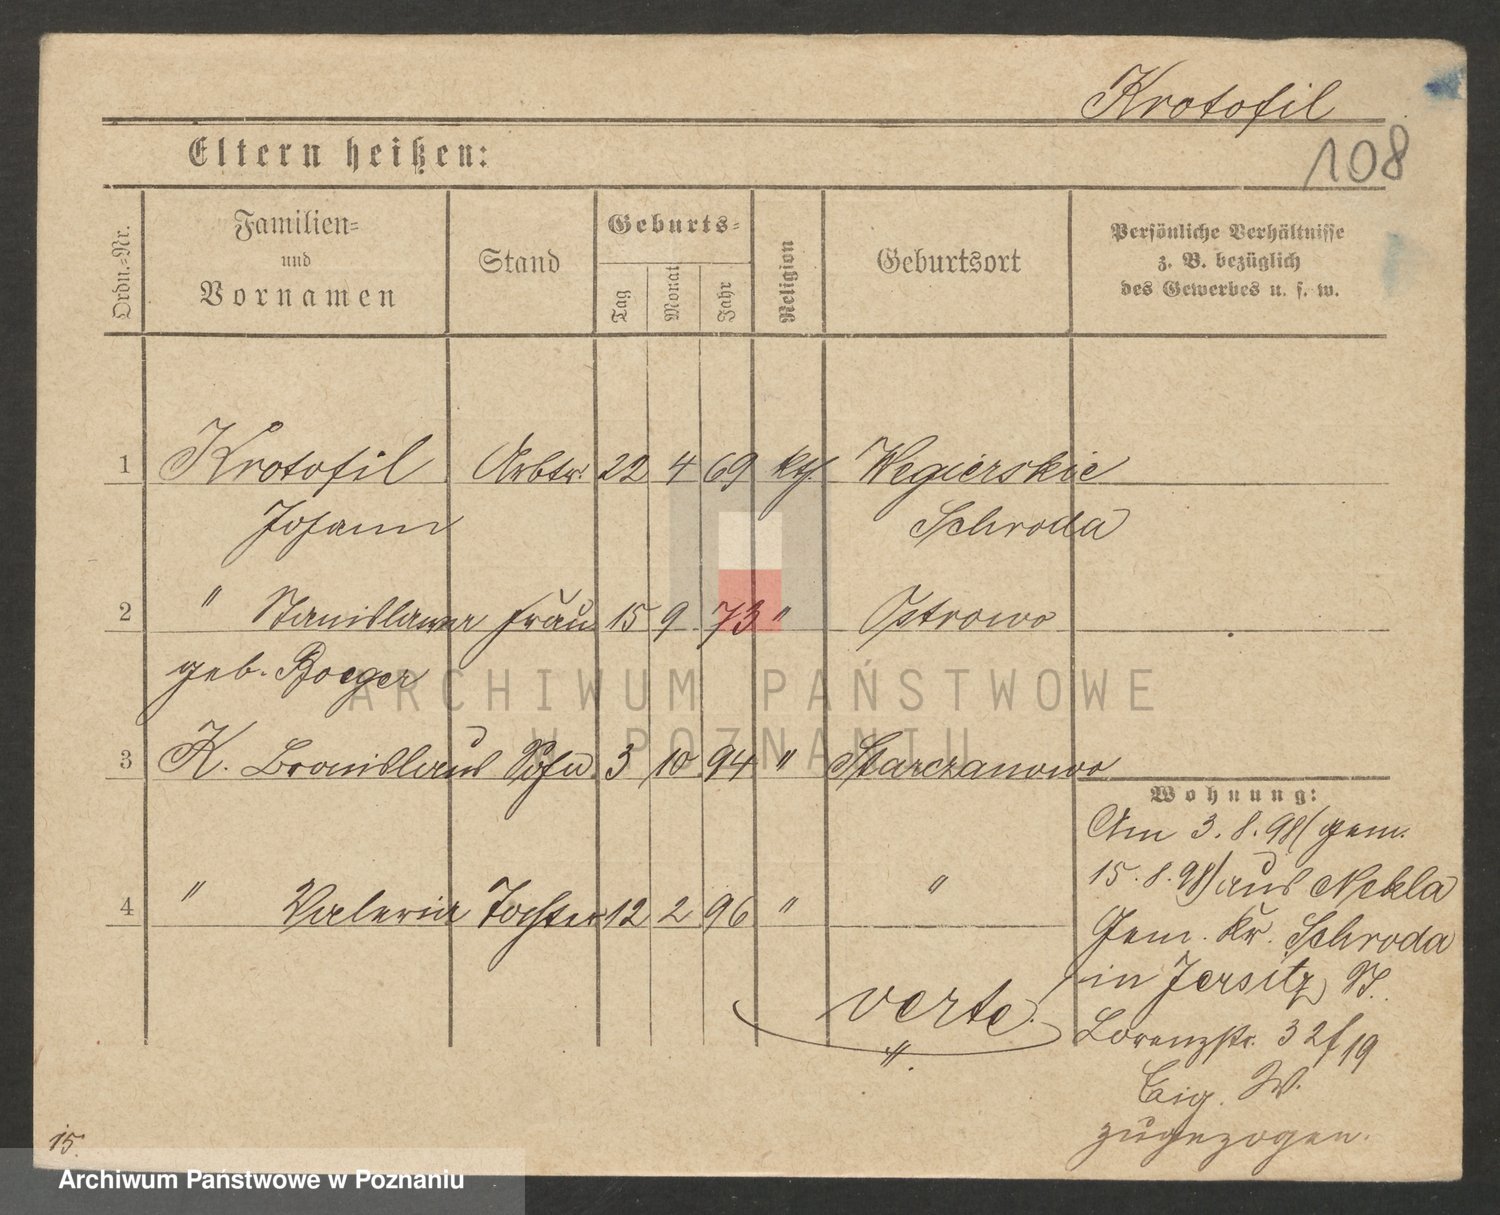 Krotofil
108
Eltern heißen:
Ordn.-Nr.
Familien-
und
Vornamen
Stand
Geburts-
Tag
Monat
Jahr
Religion
Geburtsort
Persönliche Verhältnisse
z. B. bezüglich
des Gewerbes u. s. w.
1 Krotofil Arbtr. 22 4 69 kth. Wegierskie
Johann Schroda
2 " Stanislawa Frau 15 9 73 " Ostrowo
geb. Boeger
3 K. Bronislaus Sohn 3 10 94 " Starczanowo
Wohnung:
Am 3. 8. 98 / gem.
15. 8. 98 / aus Nekla
4 " Valeria Tochter 12 2 96 " "
Gem. Kr. Schroda
in Jersitz, St.
verte.
"
Lorenzstr. 32 f 19
Eig. W.
zugezogen.
15.
ARCHIWUM PAŃSTWOWE
W POZNANIU
Archiwum Państwowe w Poznaniu